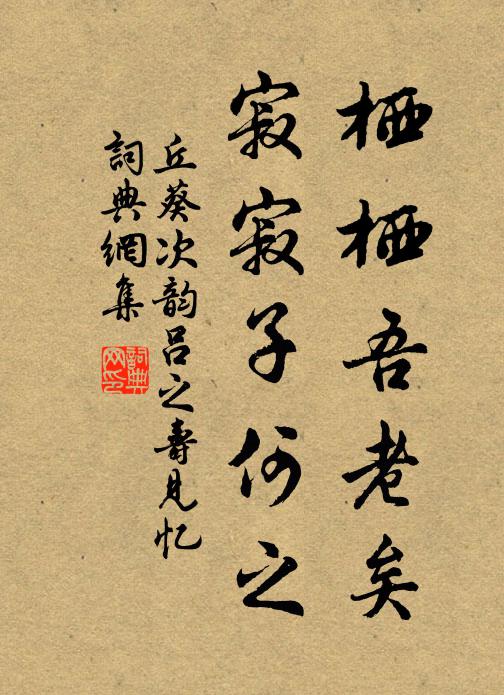 栖栖吾老矣
寂寂子何之
丘葵次韵吕之壽見忆
詞典網集
詞典网印